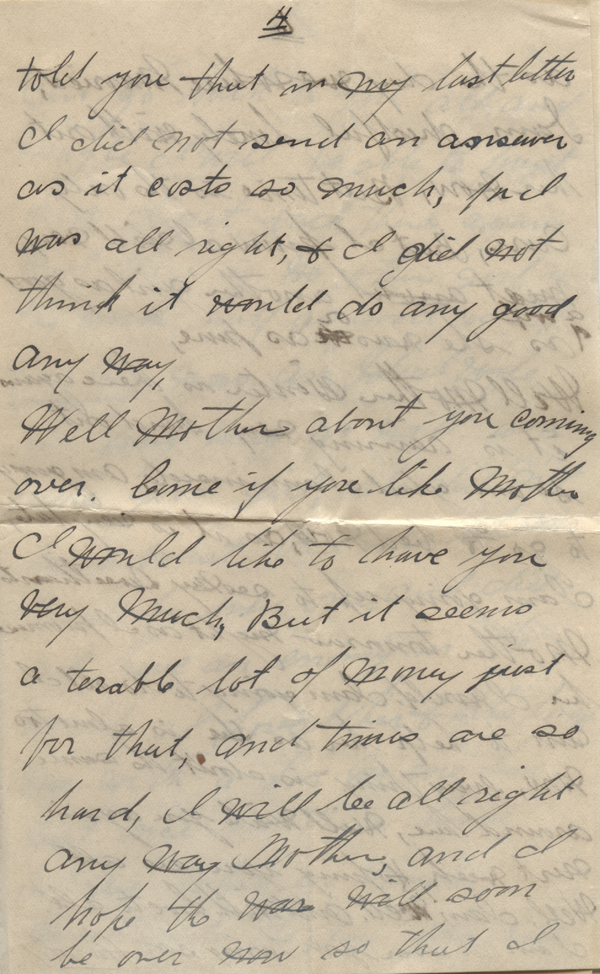 4
told you that in my last letter
I did not send an answer
as it costs so much, for I
was all right, & I did not
think it would do any good
any way,
Well Mother about you coming
over. Come if you like Mother
I would like to have you
very much, But it seems
a terable lot of money just
for that, and times are so
hard, I will be all right
any way Mother, and I
hope the war will soon
be over now so that I